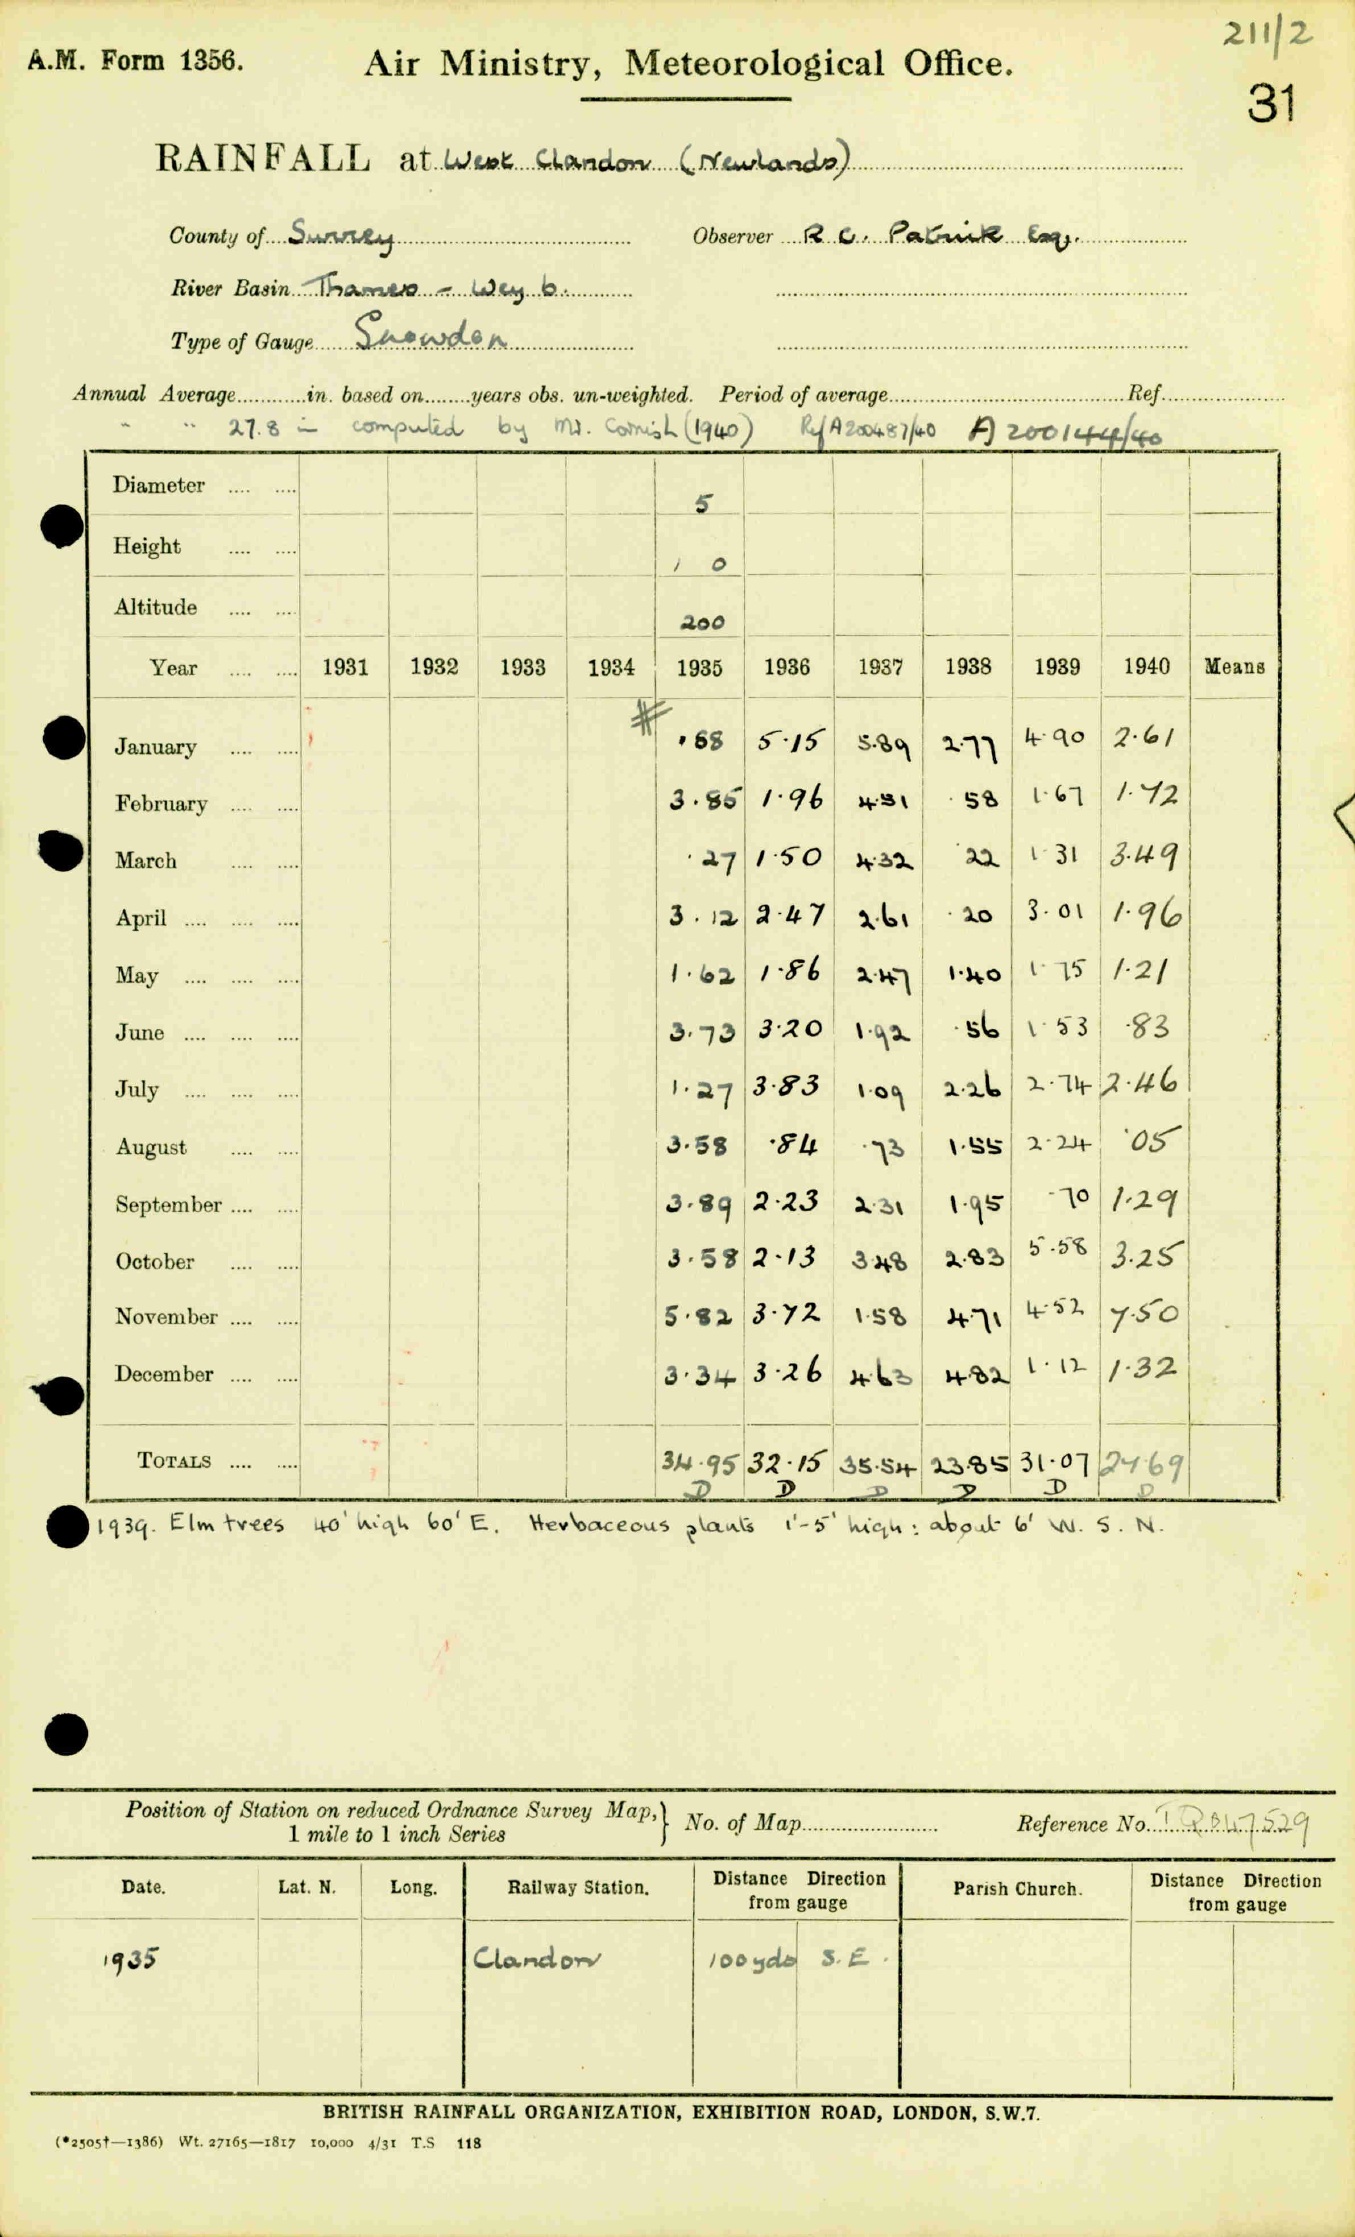 211/2
A.M. Form 1356. Air Ministry, Meteorological Office.
31
RAINFALL at West Clandon (Newlands)
County of Surrey Observer R C. Patrick Esq.
River Basin Thames - Wey b.
Type of Gauge Snowdon
Annual Average in. based on years obs. un-weighted. Period of average Ref.
" " 27.8 in computed by Mr. Cornish (1940) Ref A200487/40 A200144/40
Diameter 5
Height 1 0
Altitude 200
Year 1931 1932 1933 1934 1935 1936 1937 1938 1939 1940 Means
January # .88 5.15 5.89 2.77 4.90 2.61
February 3.85 1.96 4.51 .58 1.67 1.72
March .27 1.50 4.32 .22 1.31 3.49
April 3.12 2.47 2.61 .20 3.01 1.96
May 1.62 1.86 2.47 1.40 1.75 1.21
June 3.73 3.20 1.92 .56 1.53 .83
July 1.27 3.83 1.09 2.26 2.74 2.46
August 3.58 .84 .73 1.55 2.24 .05
September 3.89 2.23 2.31 1.95 .70 1.29
October 3.58 2.13 3.48 2.83 5.58 3.25
November 5.82 3.72 1.58 4.71 4.52 7.50
December 3.34 3.26 4.63 4.82 1.12 1.32
TOTALS 34.95 32.15 35.54 23.85 31.07 27.69
D D D D D D
1939. Elm trees 40' high 60' E. Herbaceous plants 1'-5' high : about 6' W. S. N.
Position of Station on reduced Ordnance Survey Map, 1 mile to 1 inch Series } No. of Map Reference No. TQ047529
Date. Lat. N. Long. Railway Station. Distance Direction from gauge Parish Church. Distance Direction from gauge
1935 Clandon 100 yds S.E.
BRITISH RAINFALL ORGANIZATION, EXHIBITION ROAD, LONDON, S.W.7.
(*2505†—1386) Wt. 27165—1817 10,000 4/31 T.S 118